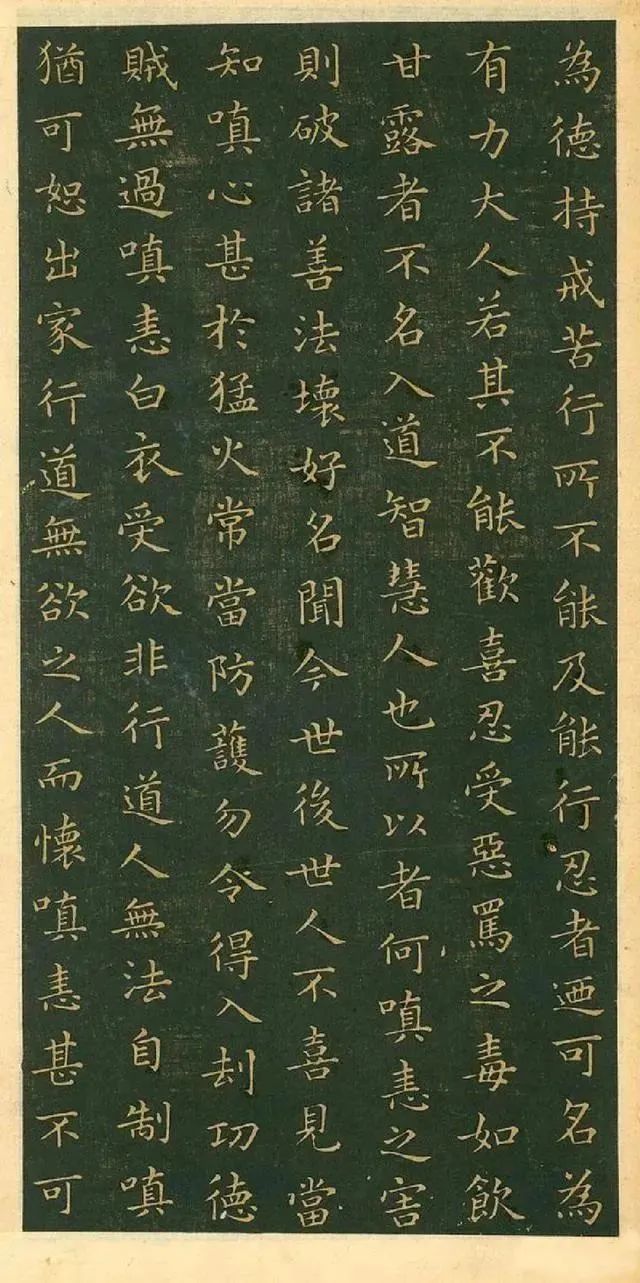 為德持戒苦行所不能及能行忍者迺可名為
有力大人若其不能歡喜忍受惡罵之毒如飲
甘露者不名入道智慧人也所以者何嗔恚之害
則破諸善法壞好名聞今世後世人不喜見當
知嗔心甚於猛火常當防護勿令得入劫功德
賊無過嗔恚白衣受欲非行道人無法自制嗔
猶可恕出家行道無欲之人而懷嗔恚甚不可